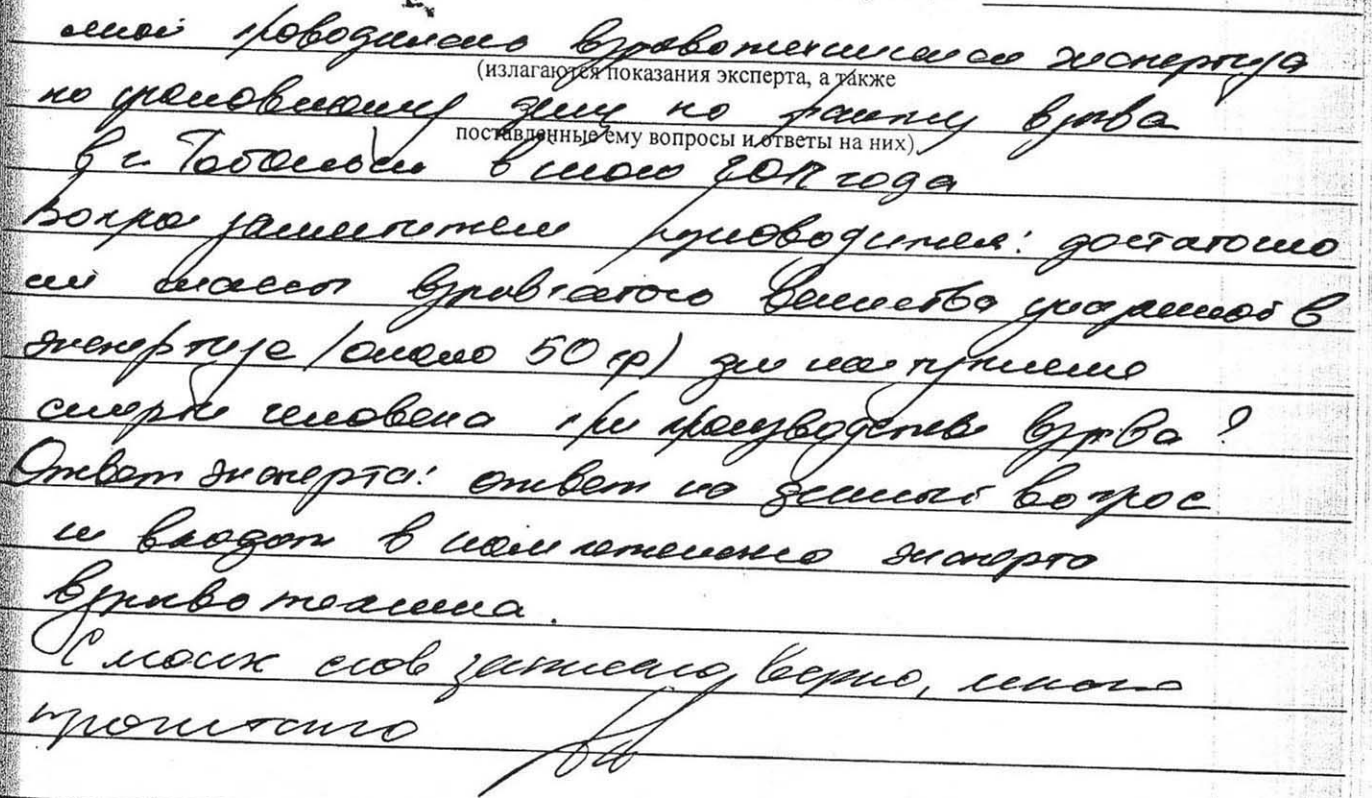 мной проводилась взрывотехническая экспертиза
(излагаются показания эксперта, а также
по уголовному делу по факту взрыва
поставленные ему вопросы и ответы на них)
в г. Тобольске в июле года
Вопрос заместителем руководителя: достаточно
ли массы взрывчатого вещества указанной в
экспертизе (около 50 гр) для наступления
смерти человека при производстве взрыва?
Ответ эксперта: ответ на данный вопрос
не входит в компетенцию эксперта
взрывотехника.
С моих слов записано верно, мною
прочитано